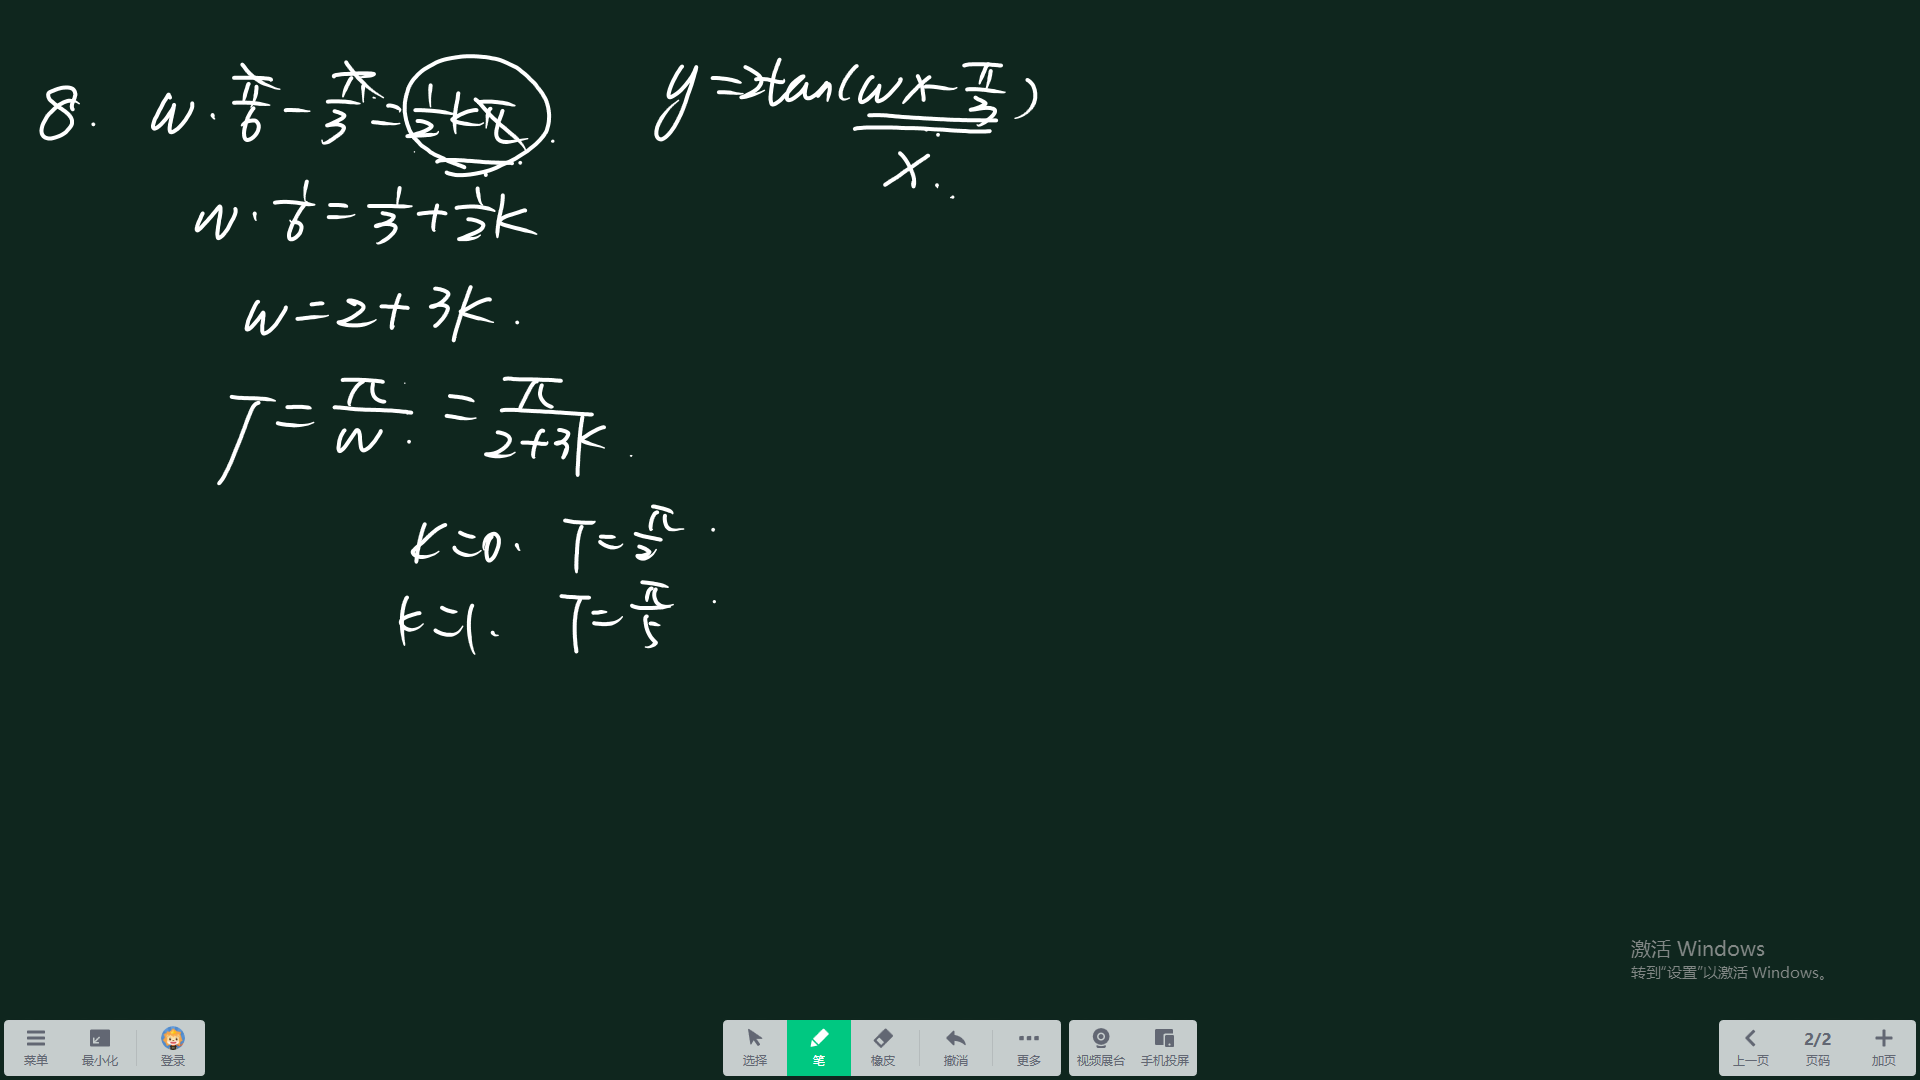 8. w·π/6 - π/3 = 1/2 kπ.
y = 2tan(wx - π/3)
x.
w·1/6 = 1/3 + 1/2 k
w = 2 + 3k.
T = π/w. = π/(2+3k).
k=0. T = π/2.
k=1. T = π/5.
激活 Windows
转到“设置”以激活 Windows。
菜单 最小化 登录 选择 笔 橡皮 撤消 更多 视频展台 手机投屏 上一页 2/2 页码 加页